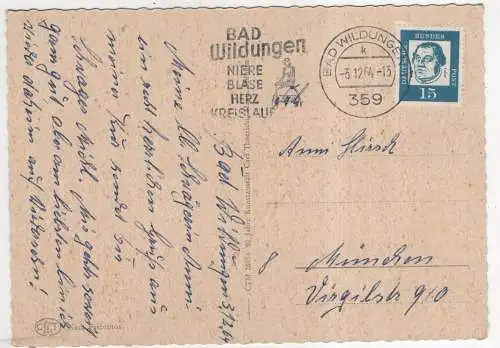 BAD
Wildungen
NIERE
BLASE
HERZ
KREISLAUF
BAD WILDUNGEN
k
-3.12.64-13
359
DEUTSCHE
BUNDES
POST
15
Bad Wildungen 3/12.64
Meine lb. Schwägerin Anni
ein recht herzlichen Gruß aus
meiner Kur sendet Dir
Schwager Michl. Mir gehts soweit
ganz gut aber am liebsten bin ich
wieder daheim auf Wiedersehn!
Anni Hirsch
München
Virgilstr 9/0
CTH
Nachdruck